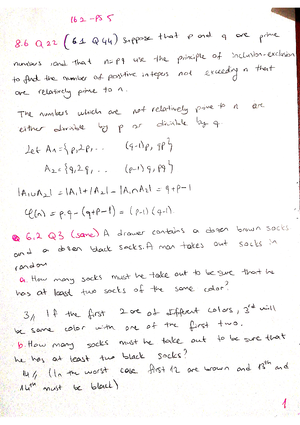 162 - PS 5
8.6 Q 22 (6.1 Q 44) Suppose that p and q are prime
numbers and that n=pq use the principle of inclusion-exclusion
to find the number of positive integers not exceeding n that
are relatively prime to n.
The numbers which are not relatively prime to n are
either divisible by p or divisible by q.
Let A₁={p,2p,.. (q-1)p, qp}
A₂={q,2q,.. (p-1)q, pq}
|A₁∪A₂| = |A₁|+|A₂|-|A₁∩A₂| = q+p-1
φ(n) = p.q - (q+p-1) = (p-1).(q-1).
6.2 Q3 (same) A drawer contains a dozen brown socks
and a dozen black socks. A man takes out socks in
random
a. How many socks must he take out to be sure that he
has at least two socks of the same color?
3// If the first 2 are of different colors, 3rd will
be same color with one of the first two.
b. How many socks must he take out to be sure that
he has at least two black socks?
14// (In the worst case first 12 are brown and 13th and
14th must be black)
1